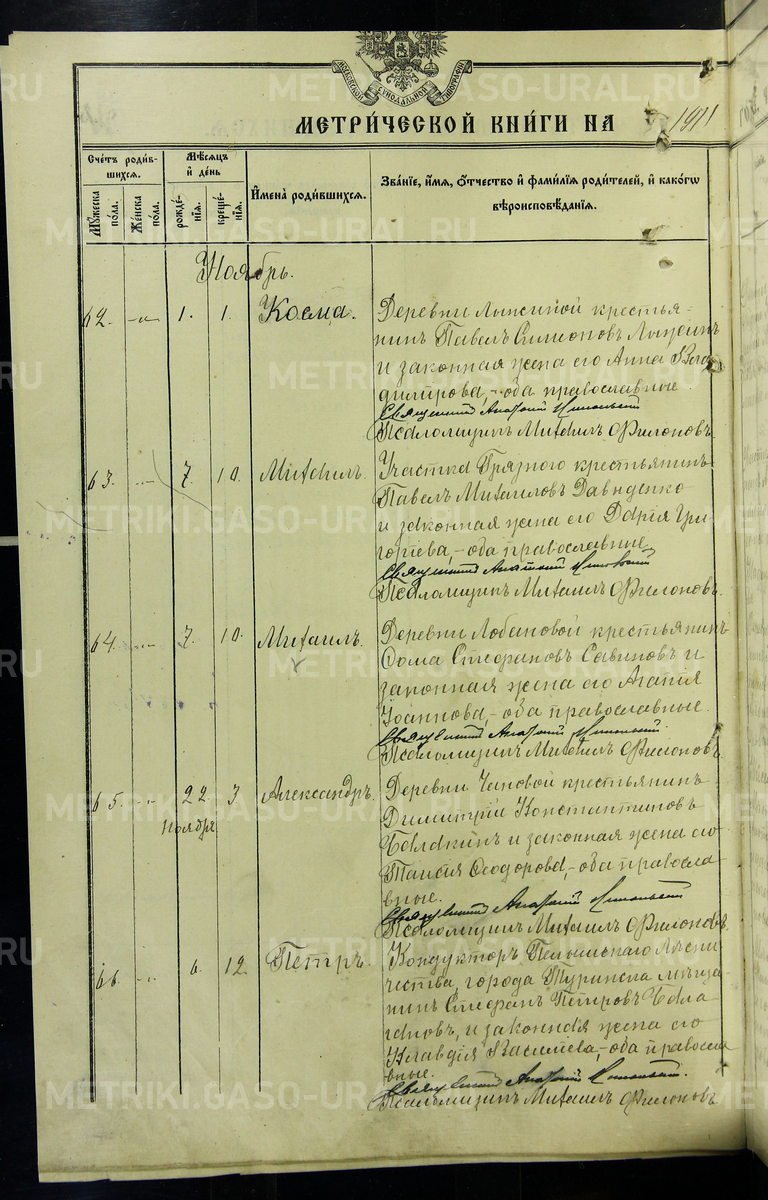 МОСКОВСКОЙ СѴНОДАЛЬНОЙ ТИПОГРАФІИ
МЕТРИ́ЧЕСКОЙ КНИ́ГИ НА 1911
Сче́тъ роди́в-
шихся.
Мѣ́сяцъ
и҆ де́нь
Му́жеска
по́ла.
Же́нска
по́ла.
рожде́-
нїѧ.
креще́-
нїѧ.
И҆мена̀ роди́вшихсѧ.
Зва́нїе, и҆́мѧ, ѻ҆́тчество и҆ фами́лїѧ роди́телей, и҆ како́гѡ
вѣроисповѣ́данїѧ.
Ноябрь.
62. -"- 1. 1. Косма. Деревни Лынсиной крестья-
нинъ Павелъ Симоновъ Лынсинъ
и законная жена его Анна Вла
димірова, - оба православные.
Священникъ Анатолій
Псаломщикъ Михаилъ Филоновъ.
63. -"- 7. 10. Михаилъ. Участка Грязного крестьянинъ
Павелъ Михаиловъ Давиденко
и законная жена его Дарія Гри-
горіева, - оба православные
Священникъ Анатолій
Псаломщикъ Михаилъ Филоновъ.
64. -"- 7. 10. Михаилъ. Деревни Лобановой крестьянинъ
Ѳома Стефановъ Савиновъ и
законная жена его Агапія
Іоаннова, - оба православные.
Священникъ Анатолій
Псаломщикъ Михаилъ Филоновъ.
65. -"- 22 3. Александръ. Деревни крестьянинъ
ноября Димитрій Константиновъ
и законная жена его
Таисія Ѳеодорова, - оба правосла-
вные.
Священникъ Анатолій
Псаломщикъ Михаилъ Филоновъ.
66. -"- 6. 12. Петръ. Кондукторъ Пелымскаго Лѣсни
чества, города Туринска мѣща-
нинъ Стефанъ Петровъ
и законная жена его
Клавдія Василіева, - оба правосла
вные.
Священникъ Анатолій
Псаломщикъ Михаилъ Филоновъ.
METRIKI.GASO-URAL.RU